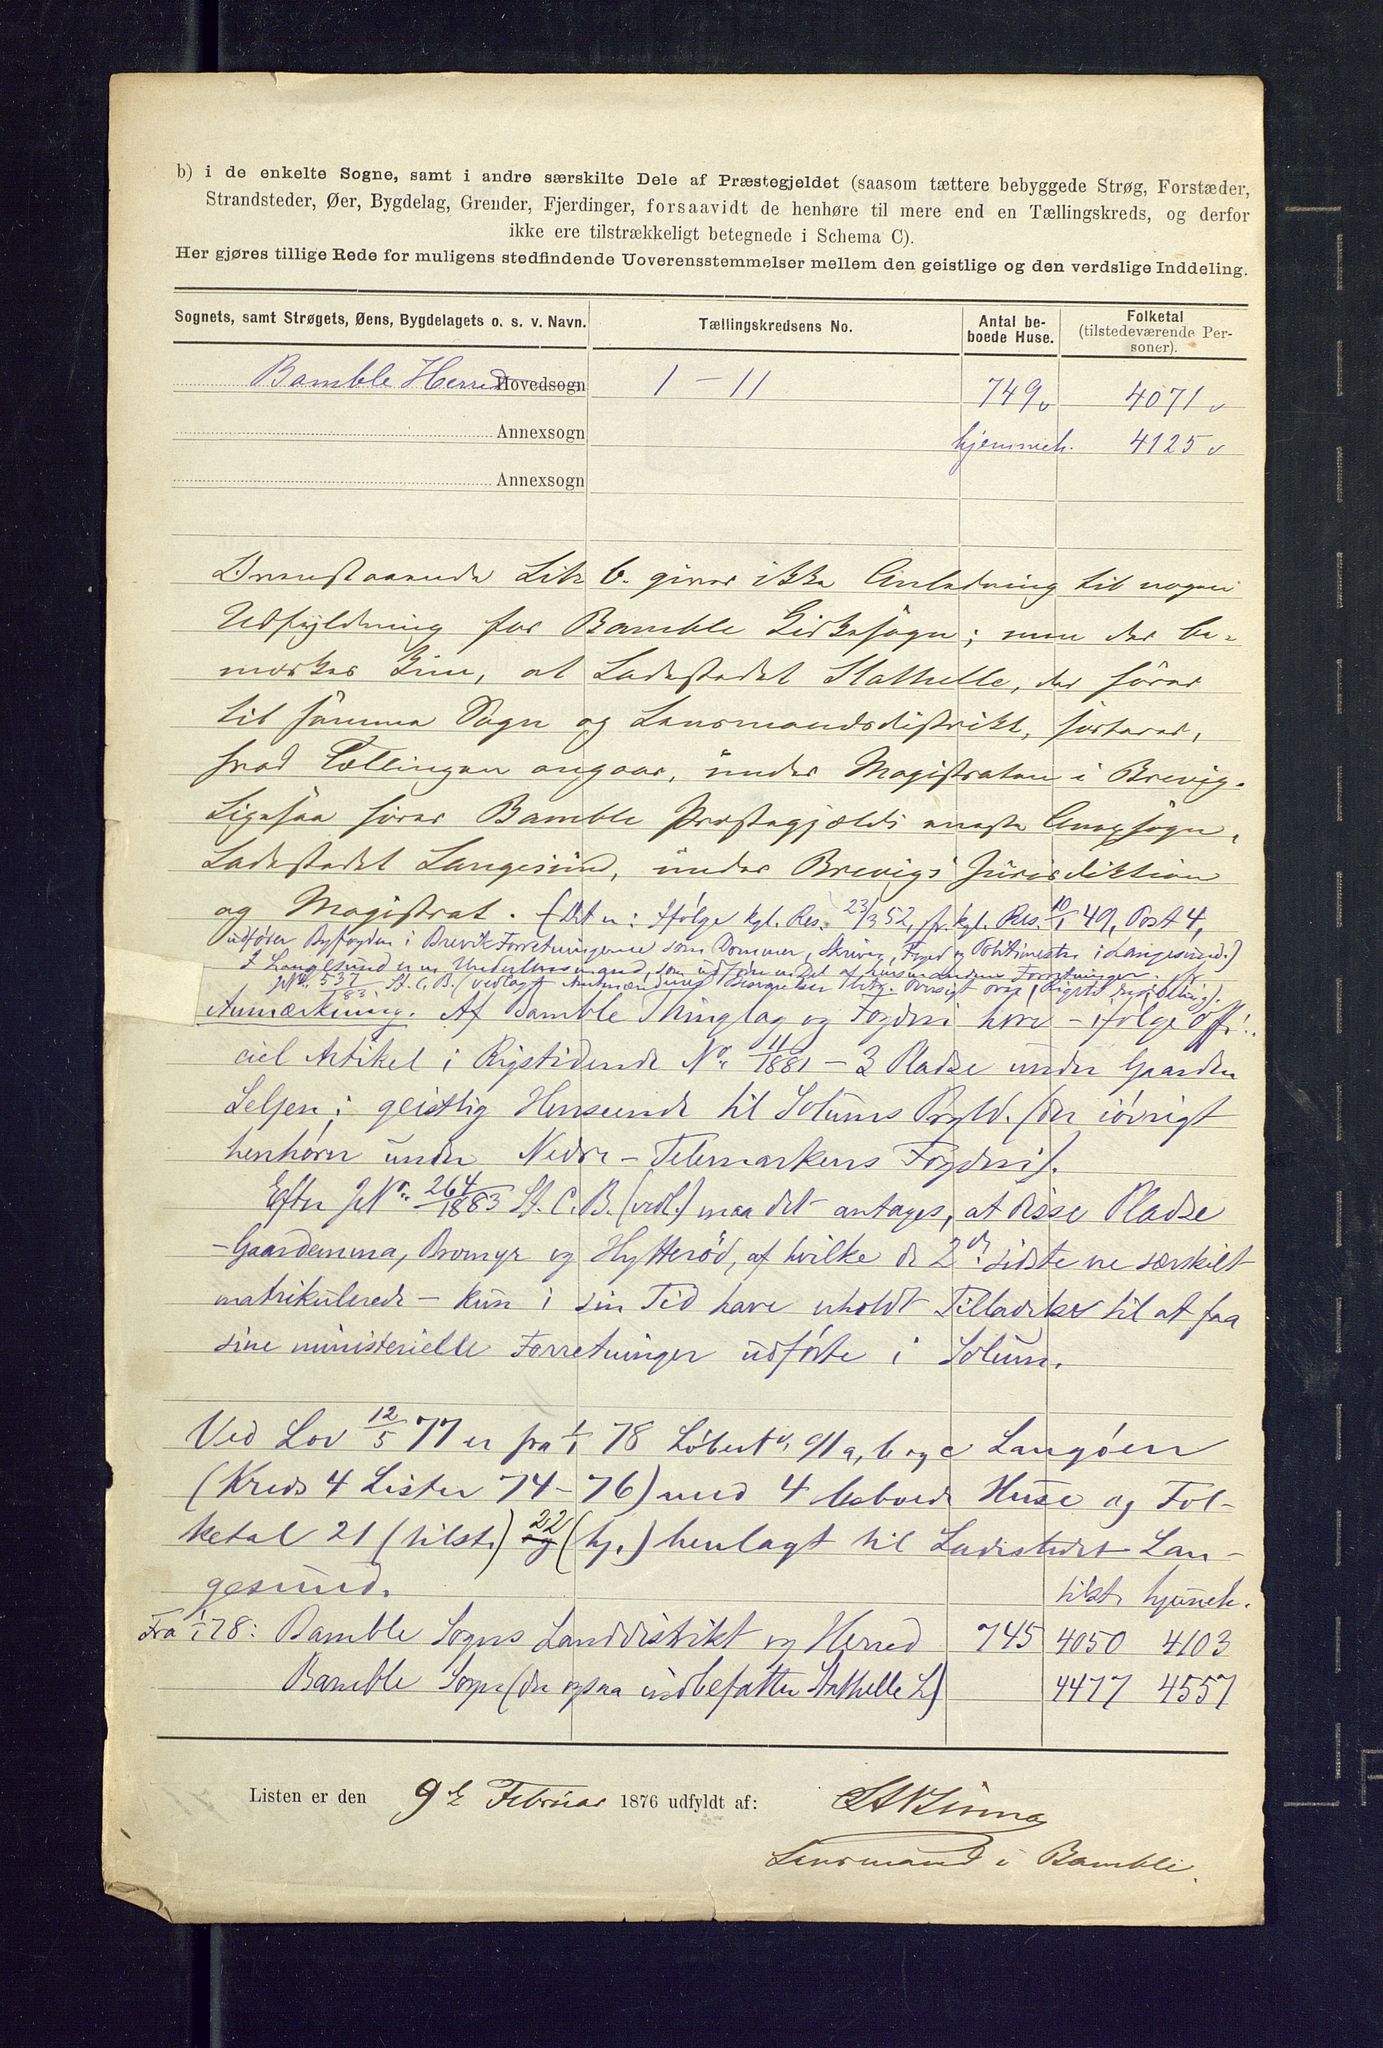 b) i de enkelte Sogne, samt i andre særskilte Dele af Præstegjeldet (saasom tættere bebyggede Strøg, Forstæder,
Strandsteder, Øer, Bygdelag, Grender, Fjerdinger, forsaavidt de henhøre til mere end en Tællingskreds, og derfor
ikke ere tilstrækkeligt betegnede i Schema C).
Her gjøres tillige Rede for muligens stedfindende Uoverensstemmelser mellem den geistlige og den verdslige Inddeling.
Sognets, samt Strøgets, Øens, Bygdelagets o. s. v. Navn. Tællingskredsens No. Antal beboede Huse. Folketal (tilstedeværende Personer).
Bamble Herred Hovedsogn 1 - 11 749 4071
Annexsogn hjemmeh. 4125
Annexsogn
Ovenstaaende Litr b. giver ikke Anledning til nogen
Udfyldning for Bamble Kirkesogn; men der be-
mærkes kun, at Ladestedet Stathelle, der hører
til samme Sogn og Lensmandsdistrikt, sorterer,
hvad Tællingen angaar, under Magistraten i Brevig.
Ligesaa hører Bamble Præstegjælds eneste Anexsogn,
Ladestedet Langesund, under Brevigs Jurisdiktion
og Magistrat. (Det er: Ifølge kgl. Res. 23/3 52, jfr. kgl. Res. 10/1 49, Post 4,
udfører Byfogden i Brevik Forretningerne som Dommer, Skriver, Foged og Politimester i Langesund.)
I Langesund er en Underlensmand, som udfører en Del af Lensmandens Forretninger. jfr
JNr. 537/83 St. C. B. (vedlagt Amtmændenes Besvarelser betr. Oversigt over Rigets Inddeling).
Anmærkning. Af Bamble Thinglag og Fogderi høre - ifølge offi-
ciel Artikel i Rigstidende No. 11/1881 - 3 Pladse under Gaarden
Seljen i geistlig Henseende til Solums Prgld. (der iøvrigt
henhører under Nedre - Telemarkens Fogderi).
Efter JNo. 264/1883 St. C. B. (vedl.) maa det antages, at disse Pladse
- Gaardemma, Bromyr og Hytterød, af hvilke de 2de sidste ere særskilt
matrikulerede - kun i sin Tid have erholdt Tilladelse til at faa
sine ministerielle Forretninger udførte i Solum.
Ved Lov 12/5 77 er fra 1/1 78 Løbenr. 91 a, b og c Langøen
(Kreds 4 Lister 74 - 76) med 4 beboede Huse og Fol-
ketal 21 (tilst.) og 22 (hj.) henlagt til Ladestedet Lan-
gesund.
tilst. hjemmeh.
Fra 1/1 78: Bamble Sogns Landdistrikt og Herred 745 4050 4103
Bamble Sogn (der ogsaa indbefatter Stathelle L) 4477 4557
Listen er den 9de Februar 1876 udfyldt af:
Lensmand i Bamble.